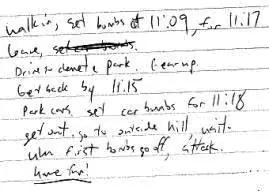 Walk in, set bombs at 11:09, for 11:17
leave,
Drive to Clemete Park. Gear up.
Get back by 11:15
Park cars. set car bombs for 11:18
get out, go to outside hill, wait.
When first bombs go off, attack.
have fun!